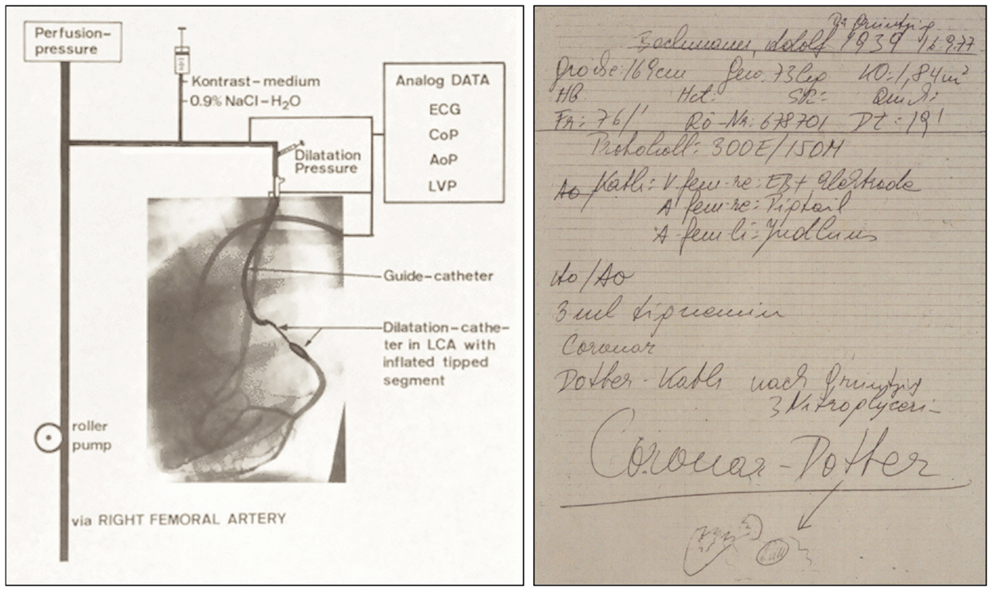 Perfusion-
pressure
Kontrast-medium
0.9% NaCl-H2O
Dilatation
Pressure
Analog DATA
ECG
CoP
AoP
LVP
Guide-catheter
Dilatation-cathe-
ter in LCA with
inflated tipped
segment
roller
pump
via RIGHT FEMORAL ARTERY
Dr Grüntzig
Bachmann, Adolf 1939 16.9.77
Größe: 169cm Gew. 73kg KO: 1,84m²
HB: Hct: Quick:
Fr: 76/' Rö-Nr: 678701 Dt: 19'
Protokoll: 300E/150M
Ao/Kath: V. fem. re: EB+ Elektrode
A fem re: Pigtail
A fem li: Judkins
Ao/Ao
3 ml
Coronar
Dotter-Kath nach Grüntzig
3 Nitroglycerin
Coronar-Dotter